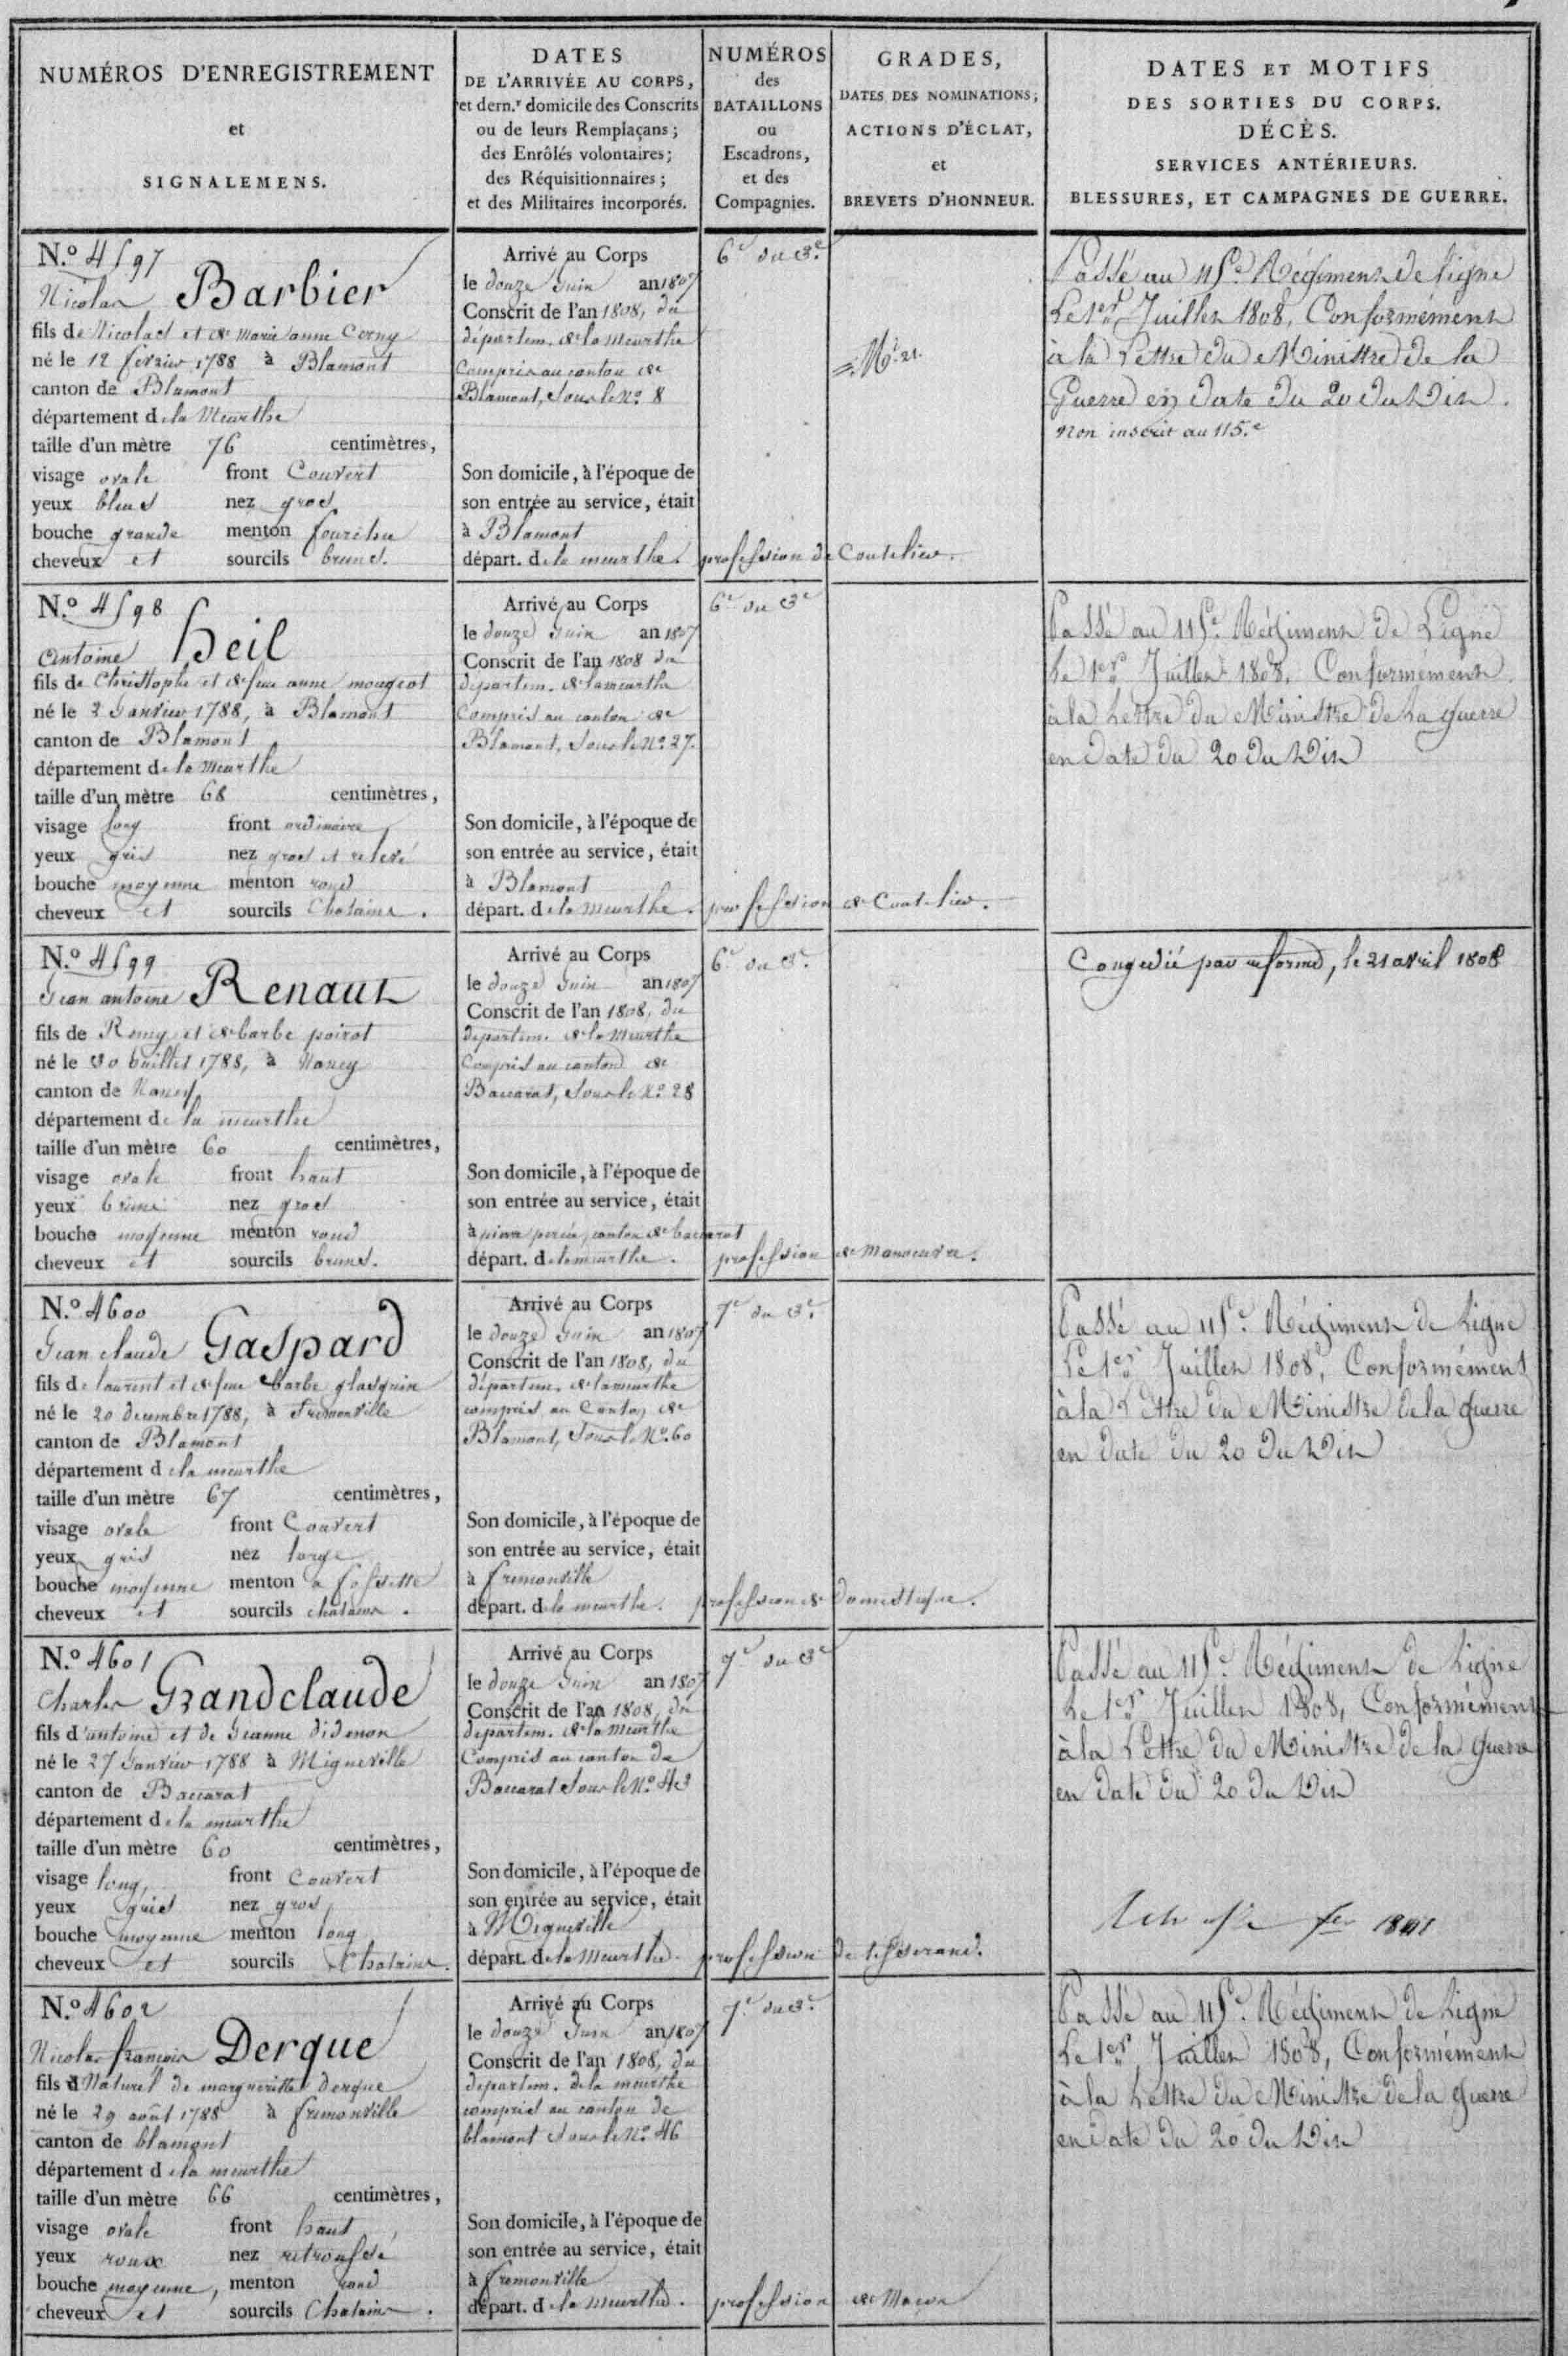 NUMÉROS D'ENREGISTREMENT
et
SIGNALEMENS.
DATES
DE L'ARRIVÉE AU CORPS,
et dern.r domicile des Conscrits
ou de leurs Remplaçans;
des Enrôlés volontaires;
des Réquisitionnaires;
et des Militaires incorporés.
NUMÉROS
des
BATAILLONS
ou
Escadrons,
et des
Compagnies.
GRADES,
DATES DES NOMINATIONS;
ACTIONS D'ÉCLAT,
et
BREVETS D'HONNEUR.
DATES ET MOTIFS
DES SORTIES DU CORPS.
DÉCÈS.
SERVICES ANTÉRIEURS.
BLESSURES, ET CAMPAGNES DE GUERRE.
N.o 4597
Nicolas Barbier
fils de Nicolas et de Marie anne Cerny
né le 12 février 1788 à Blamont
canton de Blamont
département de la Meurthe
taille d'un mètre 76 centimètres,
visage ovale front Couvert
yeux bleus nez gros
bouche grande menton fourchu
cheveux et sourcils bruns.
Arrivé au Corps
le douze Juin an 1807
Conscrit de l'an 1808, du
départem. de la Meurthe
Compris au canton de
Blamont, Sous le No. 8
Son domicile, à l'époque de
son entrée au service, était
à Blamont
départ. de la meurthe. profession de Coutelier.
6e du 3e.
Passé au 115e. Régiment de ligne
Le 1er Juillet 1808, Conformément
à la Lettre du Ministre de la
Guerre en date du 20 du Dit.
Non inscrit au 115.e
N.o 4598
Antoine Heil
fils de Christophe et de feue anne mougeot
né le 2 Janvier 1788, à Blamont
canton de Blamont
département de la Meurthe
taille d'un mètre 68 centimètres,
visage long front ordinaire
yeux gris nez gros et relevé
bouche moyenne menton rond
cheveux et sourcils Chatains.
Arrivé au Corps
le douze Juin an 1807
Conscrit de l'an 1808 du
départem. de la meurthe
Compris au canton de
Blamont, Sous le No. 27.
Son domicile, à l'époque de
son entrée au service, était
à Blamont
départ. de la Meurthe. profession de Coutelier.
6e du 3e
Passé au 115e. Régiment de Ligne
Le 1er Juillet 1808, Conformément
à la Lettre du Ministre de La guerre
en Date du 20 du Dit
N.o 4599
Jean antoine Renaut
fils de Remy et de barbe poirot
né le 30 Juillet 1788, à Nancy
canton de Nancy
département de la meurthe
taille d'un mètre 60 centimètres,
visage ovale front haut
yeux bruns nez gros
bouche moyenne menton rond
cheveux et sourcils bruns.
Arrivé au Corps
le douze Juin an 1807
Conscrit de l'an 1808, du
départem. de la Meurthe
Compris au canton de
Baccarat, Sous le No. 28
Son domicile, à l'époque de
son entrée au service, était
à pierre percée, canton de baccarat
départ. de la meurthe. profession de manoeuvre.
6e du 3e.
Congedié par reforme, le 21 avril 1808
N.o 4600
Jean claude Gaspard
fils de laurent et de feue barbe
né le 20 decembre 1788, à Fremonville
canton de Blamont
département de la meurthe
taille d'un mètre 67 centimètres,
visage ovale front Couvert
yeux gris nez large
bouche moyenne menton a fossette
cheveux et sourcils chatains.
Arrivé au Corps
le douze Juin an 1807
Conscrit de l'an 1808, du
départem. de la meurthe
compris au Canton de
Blamont, Sous le No. 60
Son domicile, à l'époque de
son entrée au service, était
à fremonville
départ. de la meurthe. profession de Domestique.
7e du 3e.
Passé au 115e. Régiment de Ligne
Le 1er Juillet 1808, Conformément
à la Lettre du Ministre de la guerre
en Date du 20 du Dit
N.o 4601
Charles Grandclaude
fils d'antoine et de Jeanne didenon
né le 27 Janvier 1788 à Migneville
canton de Baccarat
département de la meurthe
taille d'un mètre 60 centimètres,
visage long, front Couvert
yeux gris nez gros
bouche moyenne menton long
cheveux et sourcils Chatains.
Arrivé au Corps
le douze Juin an 1807
Conscrit de l'an 1808, du
départem. de la Meurthe
Compris au canton de
Baccarat Sous le No. 43
Son domicile, à l'époque de
son entrée au service, était
à Migneville
départ. de la Meurthe. profession de tisserand.
7e du 3e
Passé au 115e. Régiment de Ligne
Le 1er Juillet 1808, Conformément
à la Lettre du Ministre de la Guerre
en Date du 20 du Dit
N.o 4602
Nicolas françois Derque
fils Naturel de margueritte derque
né le 29 août 1788 à fremonville
canton de blamont
département de la meurthe
taille d'un mètre 66 centimètres,
visage ovale front haut
yeux roux nez retroussé
bouche moyenne, menton rond
cheveux et sourcils Chatains.
Arrivé au Corps
le douze Juin an 1807
Conscrit de l'an 1808, du
départem. de la meurthe
compris au canton de
blamont Sous le No. 46
Son domicile, à l'époque de
son entrée au service, était
à fremonville
départ. de la Meurthe. profession de Maçon
7e du 3e.
Passé au 115e. Régiment de Ligne
Le 1er Juillet 1808, Conformément
à la Lettre du Ministre de la guerre
en Date du 20 du Dit